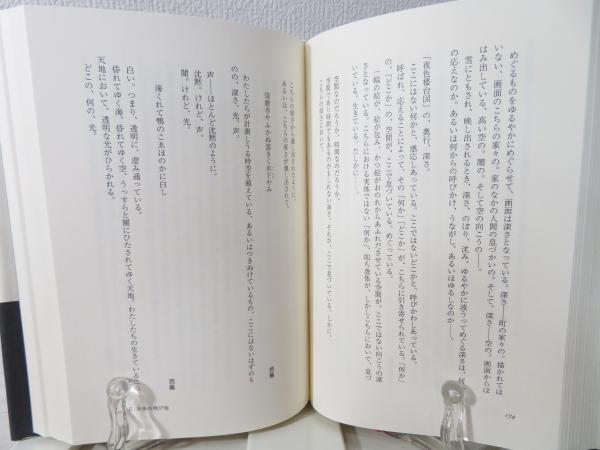 めぐるものをゆるやかにめぐらせて、画面は深さとなっている。深さ――町の家々の。描かれては
いない、画面のこちらの家々の。家のなかの人間の息づかいの。そして、深さ――空の。画面からは
はみ出している、高い空の。闇の。そして空の向こうの――。
雪にともされ、映し出されるとき、深さ、のぼり、沈み、ゆるやかに波うってめぐる深さは、何
の応えなのか。あるいは何からの呼びかけ、うながし、あるいはゆるしなのか……。
「夜色楼台図」の、奥行、深さ。
ここにはない何かと、感応しあっている。ここではないどこかと、呼びかわしあっている。
呼ばれ、応えることによって、その「何か」「どこか」が、こちらに引き寄せられている。「何か」
の、「どこか」の、空間が、ここで息づいている。めぐっている。
一幅の絵が、絵が包み、かつ絵がそのれからあふれださせている空間が、ここではない向こうの深
さとなっている。こちらにおける実体ではない「何か」、即ち虚体が、しかしこちらにおいて、息づ
いている、生きている。たしかに……。
空間なのだろうか、時間なのだろうか、
空間であり時間でもあるのかもしれない深さ、それが、ここで息づいている、しかに、
こちらの深さから湧し出されたように、
あるいは、こちらの深さが湧し出されて、
須磨寺やふかぬ笛きく木下やみ
芭蕉
わたしたちが計測しうる時空を超えている、あるいはつきぬけているもの、ここにはないはずのも
のの、深さ、光、声。
声――ほとんど沈黙のように。
沈黙。けれど、声。
闇。けれど、光。
海くれて鴨のこゑほのかに白し
芭蕉
白い。つまり、透明に、澄み通っている。
昏れてゆく海、昏れてゆく空、うっすらと闇にひたされてゆく天地。わたしたちの生きているこ
天地において、透明な光がひらかれる。
どこの、何の、光。
174